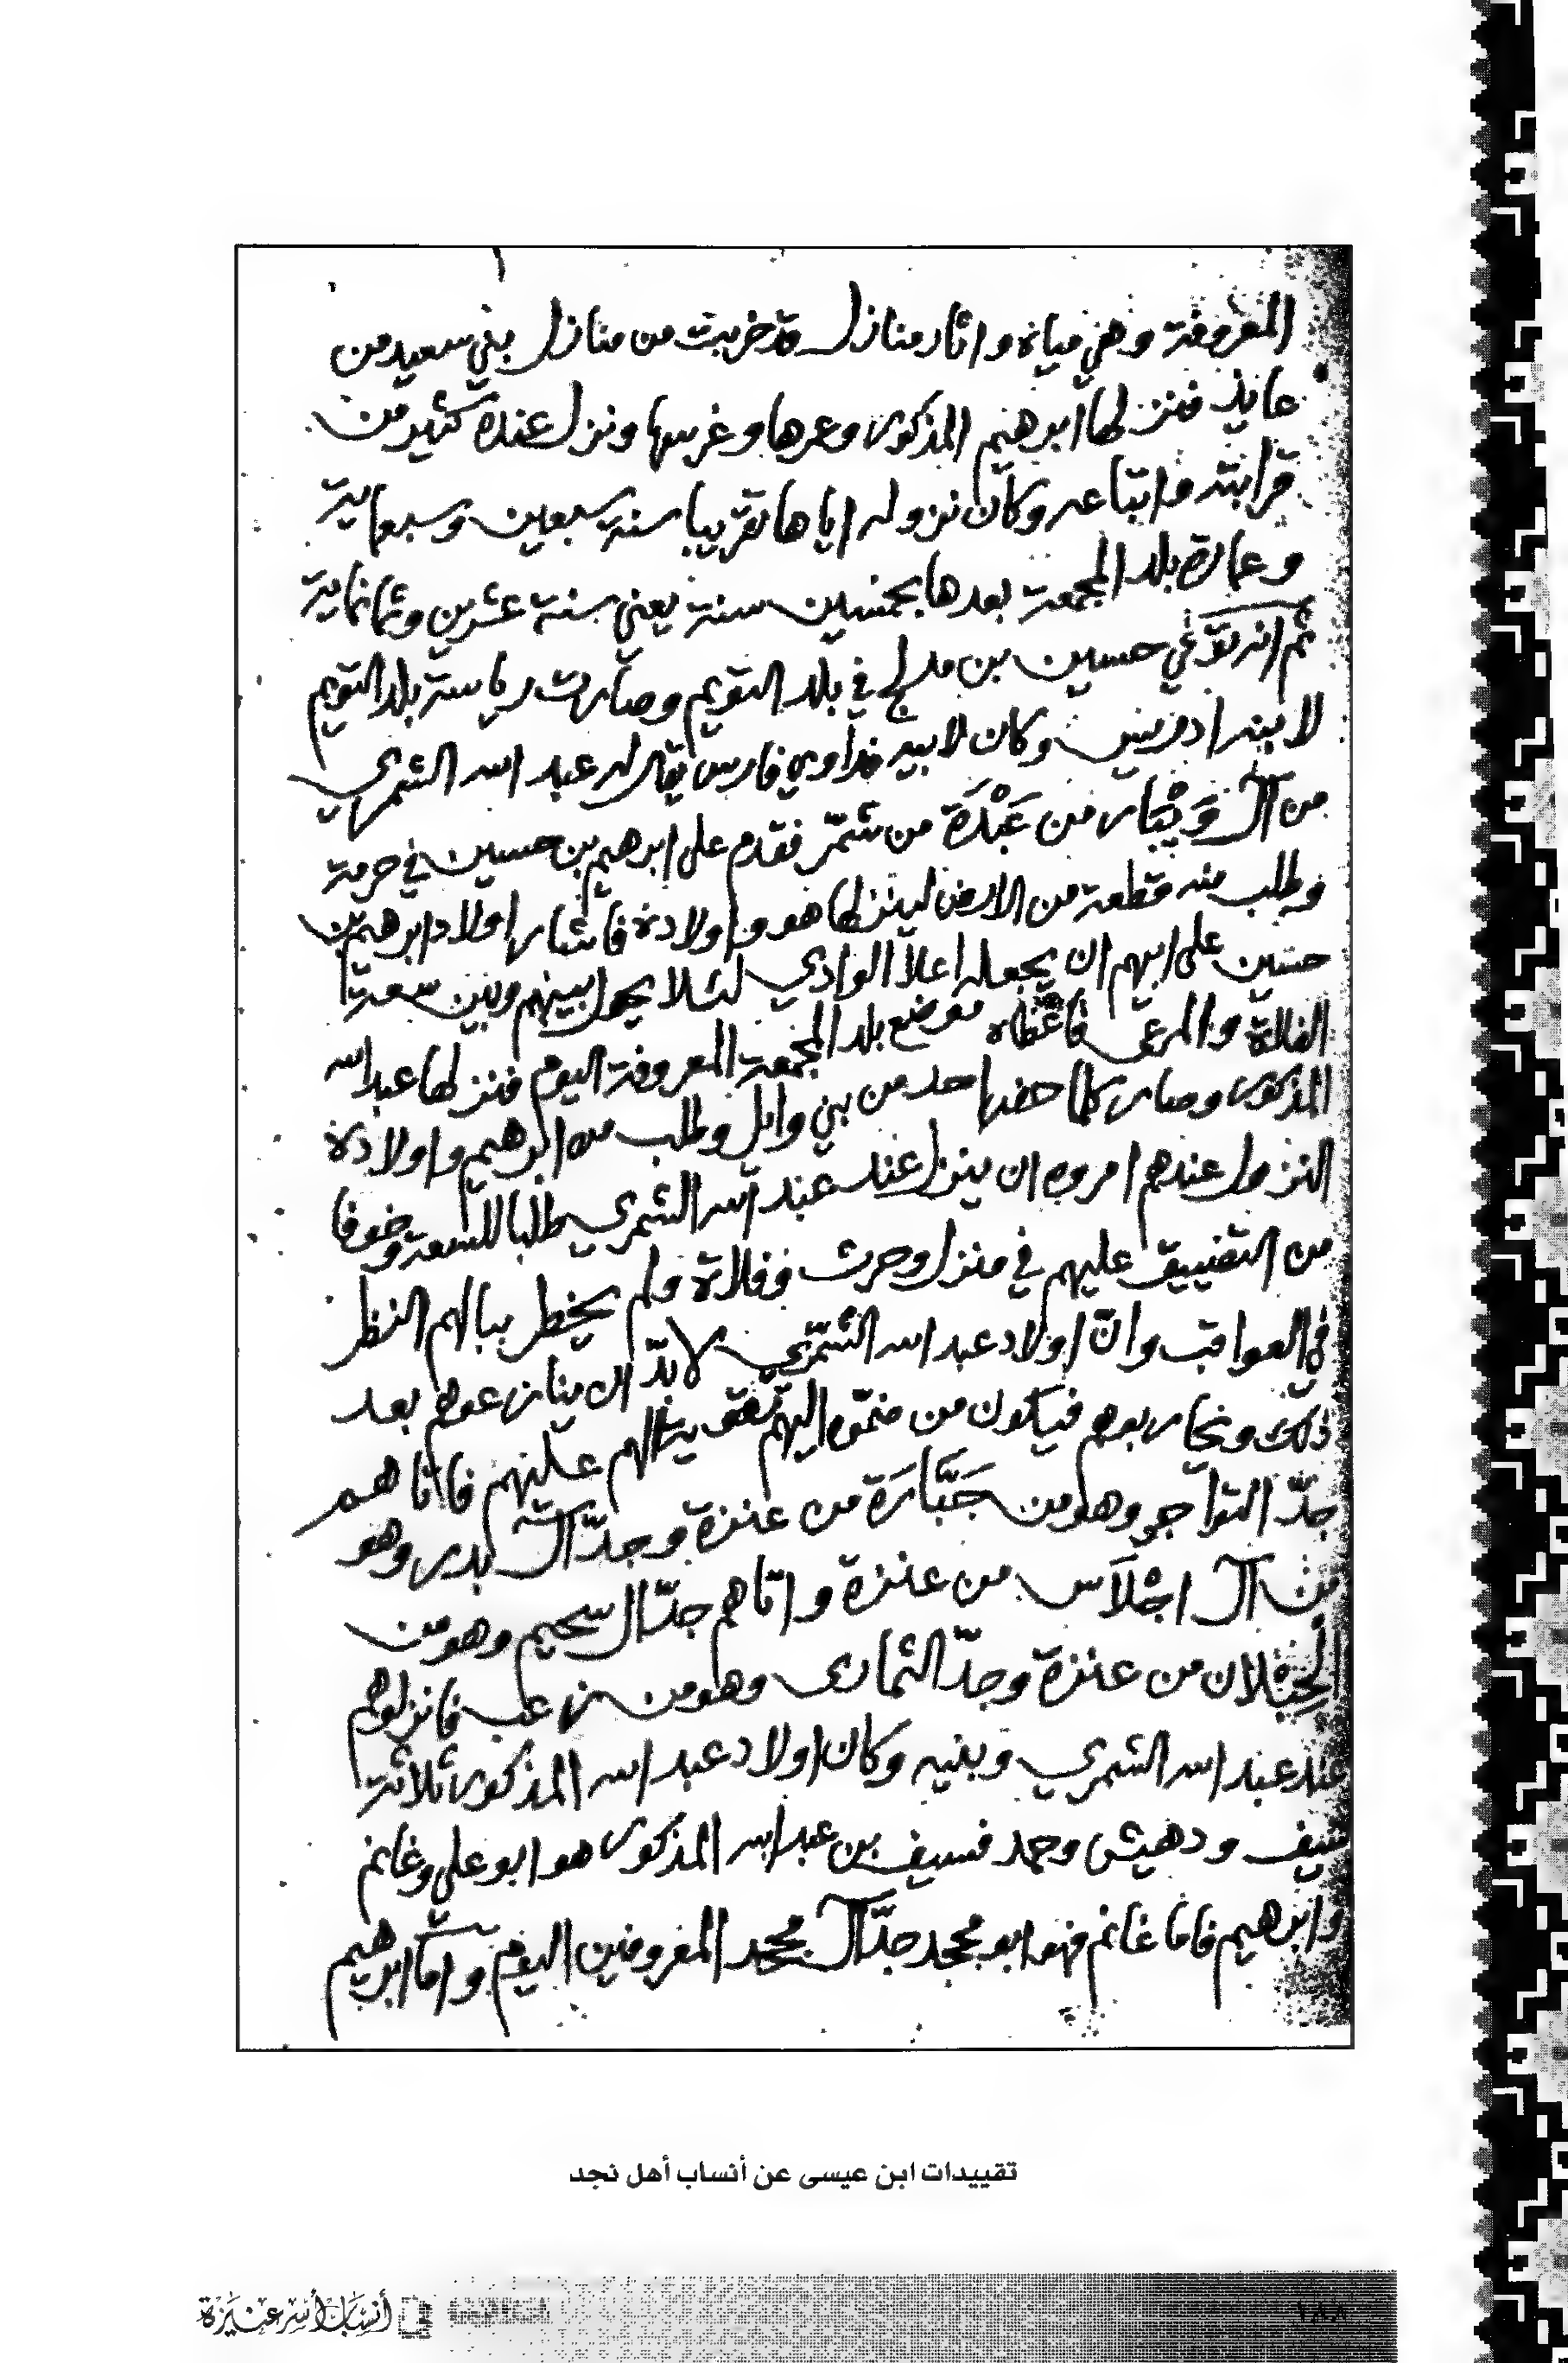 المعروفة وهي مياه واثار منازل قد خربت من منازل بني سعيد من
عايذ فنزلها ابرهيم المذكور وعمرها وغرسها ونزل عنده كثير من
قرابته واتباعه وكان نزوله اياها تقريبا سنة سبعين وسبعماية
وعمارة بلد المجمعة بعدها بخمسين سنة يعني سنة عشرين وثمانماية
ثم انه توفي حسين بن مدلج في بلد التويم وصارت رياسة بلد التويم
لابنه ادريس وكان لابيه فداوي فارس يقال له عبد الله الشمري
من آل وَيْبَار من عَبْدَة من شمّر فقدم على ابرهيم بن حسين في حرمة
وطلب منه قطعة من الارض لينزلها هو واولاده فاشار اولاد ابرهيم بن
حسين على ابيهم ان يجعله اعلا الوادي لئلا يحول بينهم وبين سعة
الفلاة والمرعى فاعطاه موضع بلد المجمعة المعروفة اليوم فنزلها عبد الله
المذكور وصار كلما حضر احد من بني وايل وطلب من ابرهيم واولاده
النزول عندهم امروه ان ينزل عند عبد الله الشمري طلبا للسعة وخوفا
من التضييق عليهم في منزل وحرث وفلاة ولم يخطر ببالهم النظر
في العواقب وانّ اولاد عبد الله الشمّري لا بدّ ان ينازعوهم بعد
ذلك ويحاربوهم فيكون من ضمّوه اليهم تقوية لهم عليهم فاتاهم
جدّ التواجر وهو من جَبَّارَة من عنزة وجدّ آل بدر وهو
من آل اجْلَاس من عنزة واتاهم جدّ ال سحيم وهو من
الحِبْلان من عنزة وجدّ الثماري وهو من زعب فانزلوهم
عند عبد الله الشمري وبنيه وكان اولاد عبد الله المذكور ثلاثة
سيف ودهيش وحمد فسيف بن عبد الله المذكور هو ابو علي وغانم
وابرهيم فاما غانم فهو ابو محمد جدّ آل محمد المعروفين اليوم واما ابرهيم
تقييدات ابن عيسى عن أنساب أهل نجد
١٨٨
في أنساب أسر عنيزة